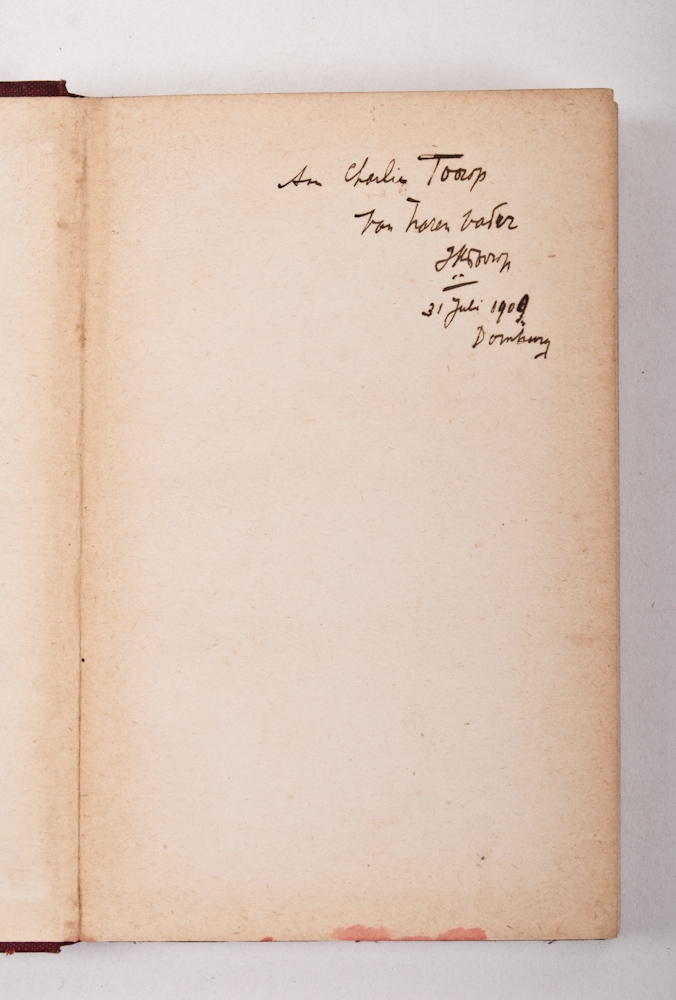 Aan Charlie Toorop
van haren vader
JThToorop
31 Juli 1909
Domburg